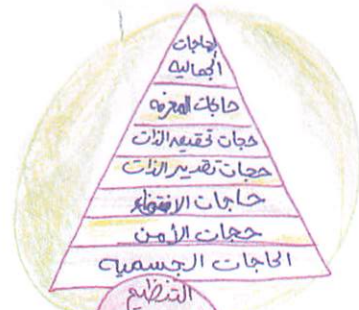 حاجات
الجمالية
حاجات المعرفه
حجات تحقيق الذات
حجات تقدير الذات
حاجات الانتماء
حجات الأمن
الحاجات الجسمية
التنظيم